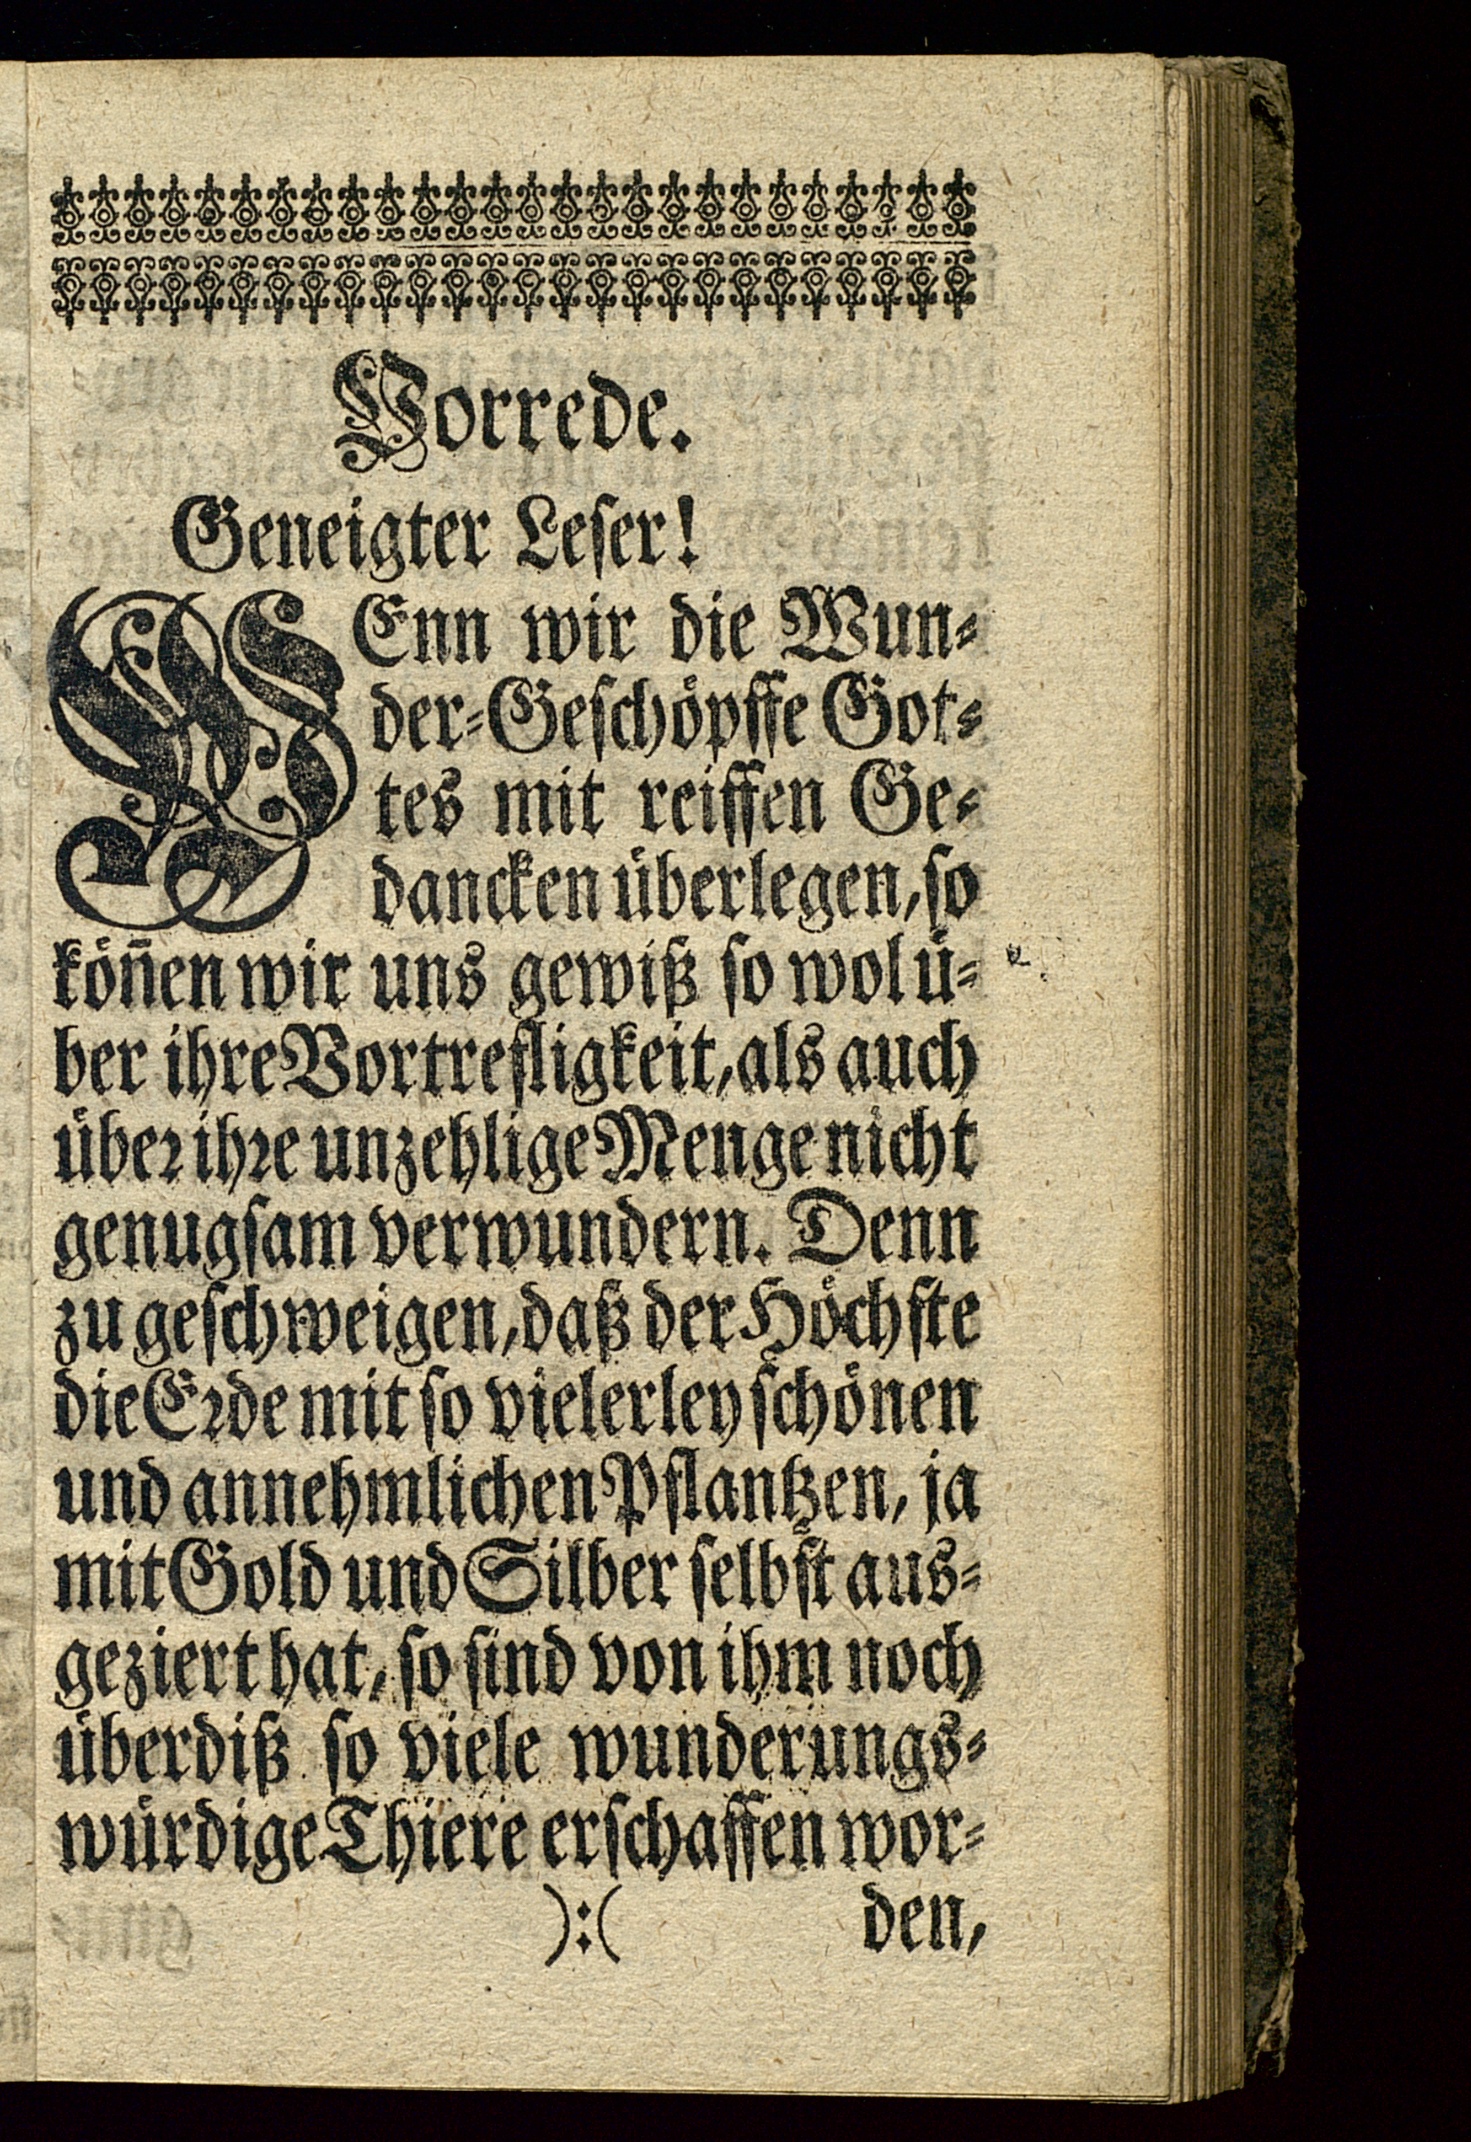 Vorrede.
Geneigter Leser!
WEnn wir die Wun-
der-Geschöpffe Got-
tes mit reiffen Ge-
dancken überlegen, so
kön̄en wir uns gewiß so wol ü-
ber ihre Vortrefligkeit, als auch
über ihre unzehlige Menge nicht
genugsam verwundern. Denn
zu geschweigen, daß der Höchste
die Erde mit so vielerley schönen
und annehmlichen Pflantzen, ja
mit Gold und Silber selbst aus-
geziert hat, so sind von ihm noch
überdiß so viele wunderungs-
würdige Thiere erschaffen wor-
):( den,